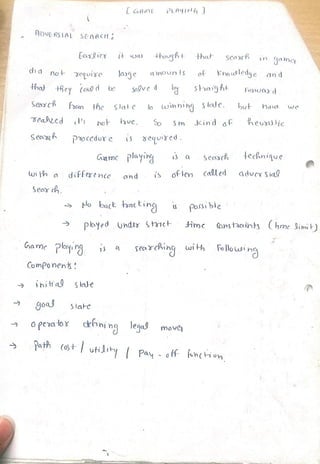 [ GAME PLAYING ]
ADVERSIAL SEARCH:
Earlier it was thought that search in games
did not require large amounts of knowledge and
that they could be solved by straight forward
search from the state to winning state. but now we
realized it's not true. So sm kind of heuristic
search procedure is required.
Game playing is a search technique
with a difference and is often called adversial
search.
→ No back tracking is possible
→ played under strict time constraints (time limit)
Game playing is a searching with following
components:
→ initial state
→ goal state
→ operator defining legal moves
→ Path cost / utility / Pay-off function.